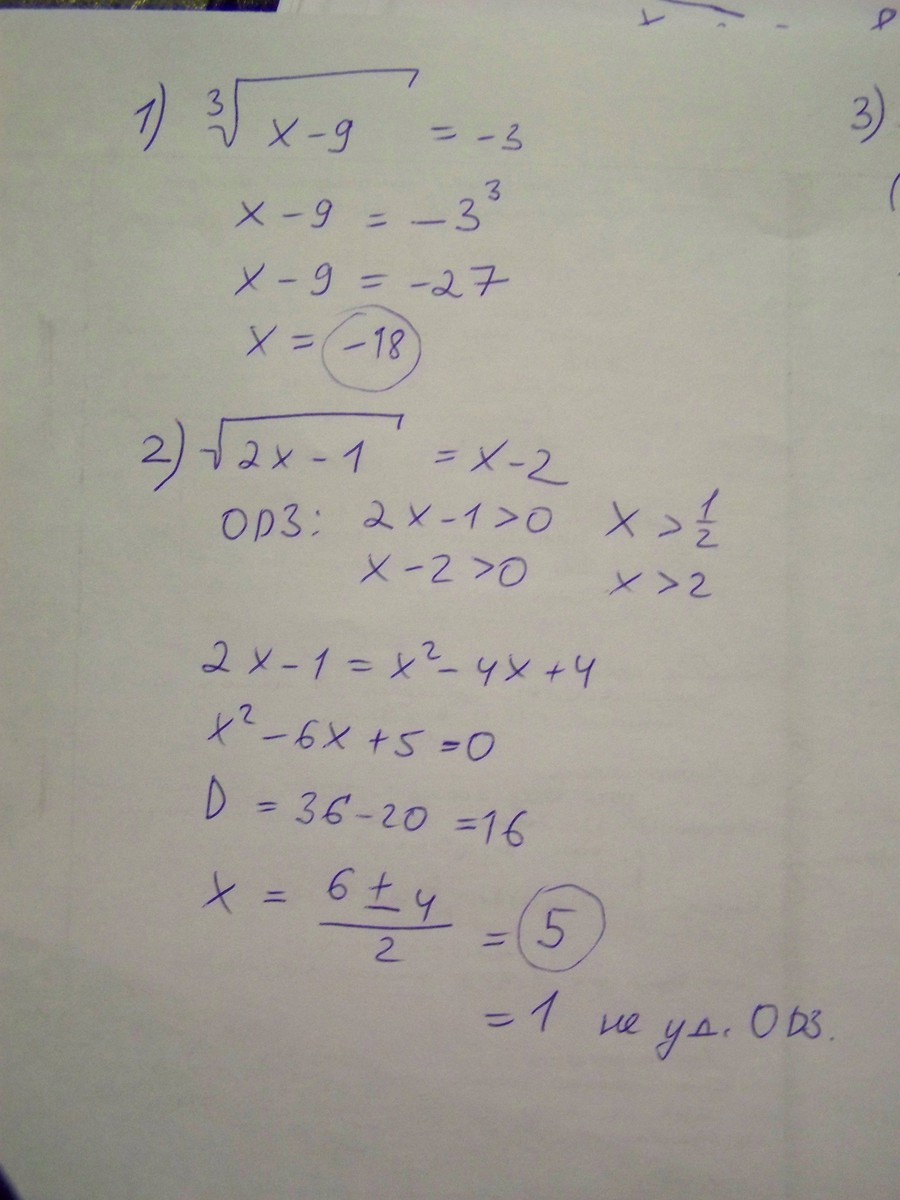 1) ∛(x-9) = -3
x-9 = -3³
x-9 = -27
x = -18
2) √(2x-1) = x-2
ОДЗ: 2x-1>0 x > 1/2
x-2>0 x>2
2x-1 = x²-4x+4
x²-6x+5=0
D = 36-20 =16
x = (6±4)/2 = 5
=1 не уд. ОДЗ.
3)